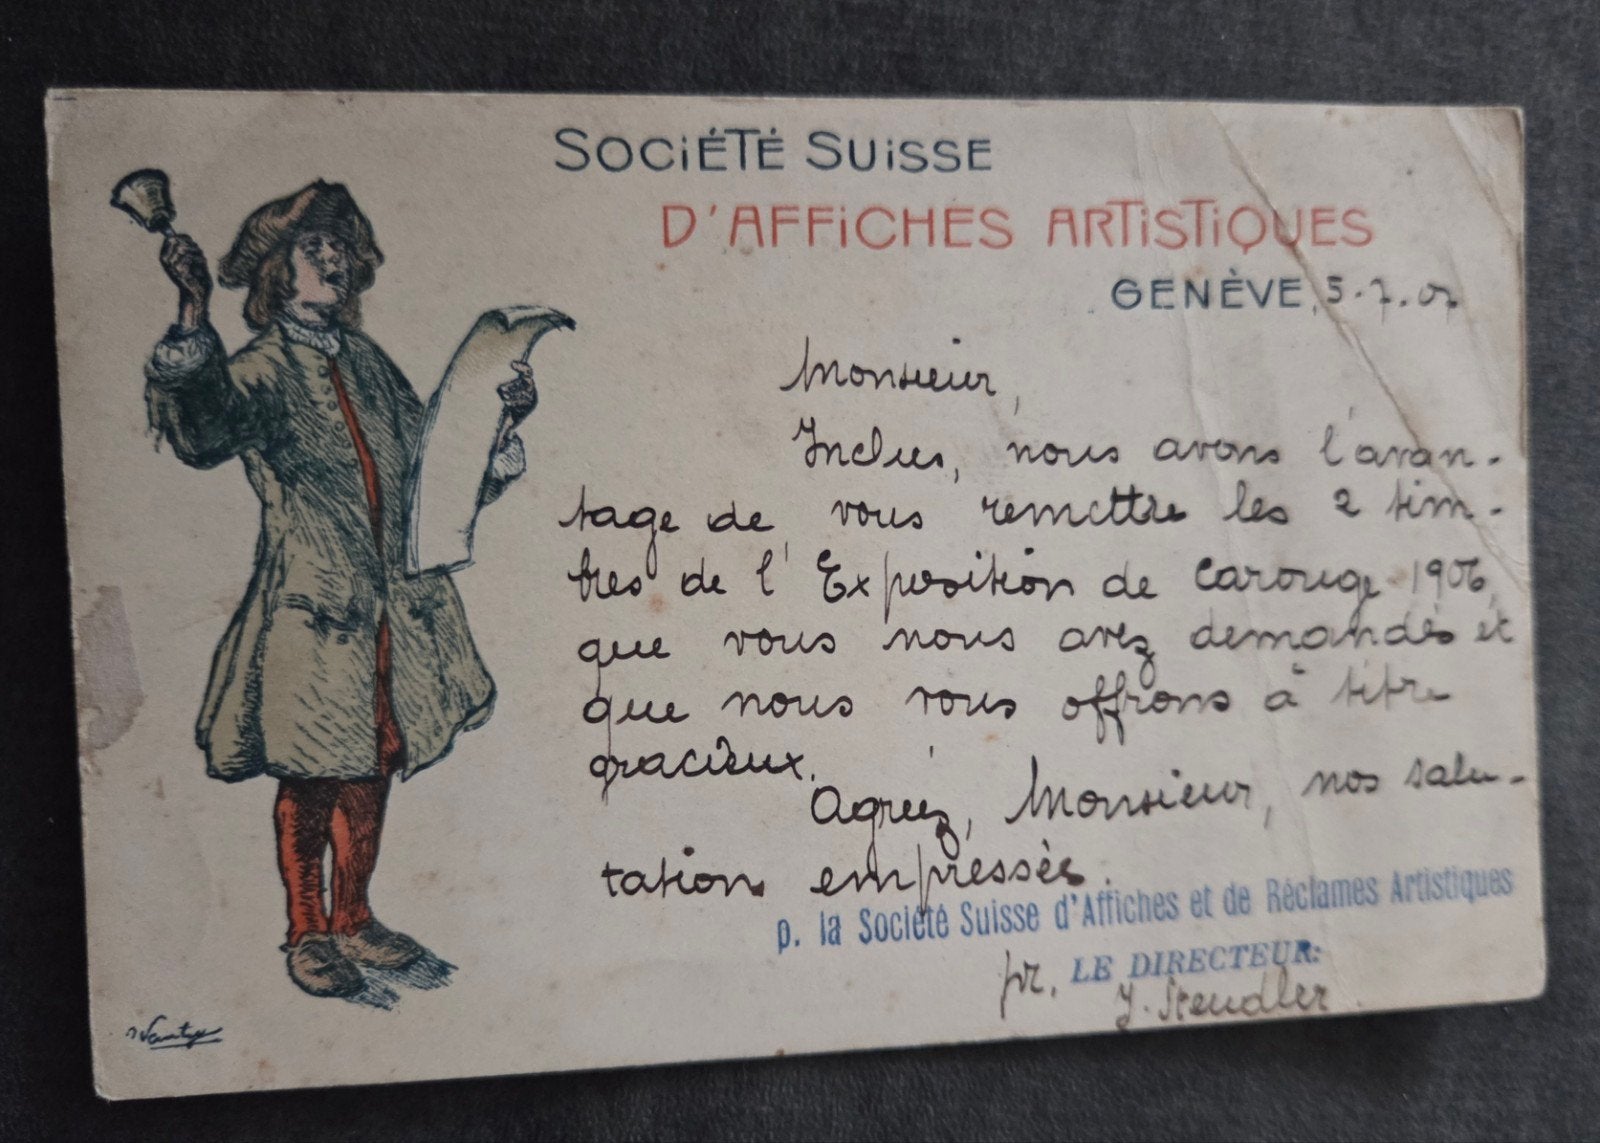 SOCIÉTÉ SUISSE
D'AFFICHES ARTISTIQUES
GENÈVE, 5.7.07
Monsieur,
Inclus, nous avons l'avan-
tage de vous remettre les 2 tim-
bres de l'Exposition de Carouge 1906,
que vous nous avez demandés et
que nous vous offrons à titre
gracieux.
Agréez, Monsieur, nos salu-
tation empressées.
p. la Société Suisse d'Affiches et de Réclames Artistiques
pr. LE DIRECTEUR:
J. Steudler